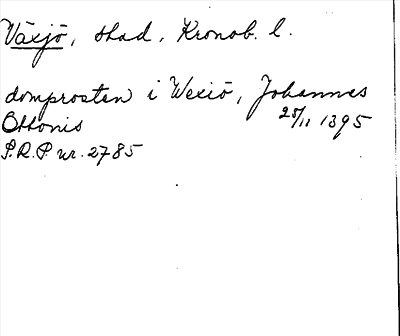 Växjö, stad, Kronob. l.
domprosten i Wexiö, Johannes
Ottonis 25/11 1395
P.R.P. nr. 2785